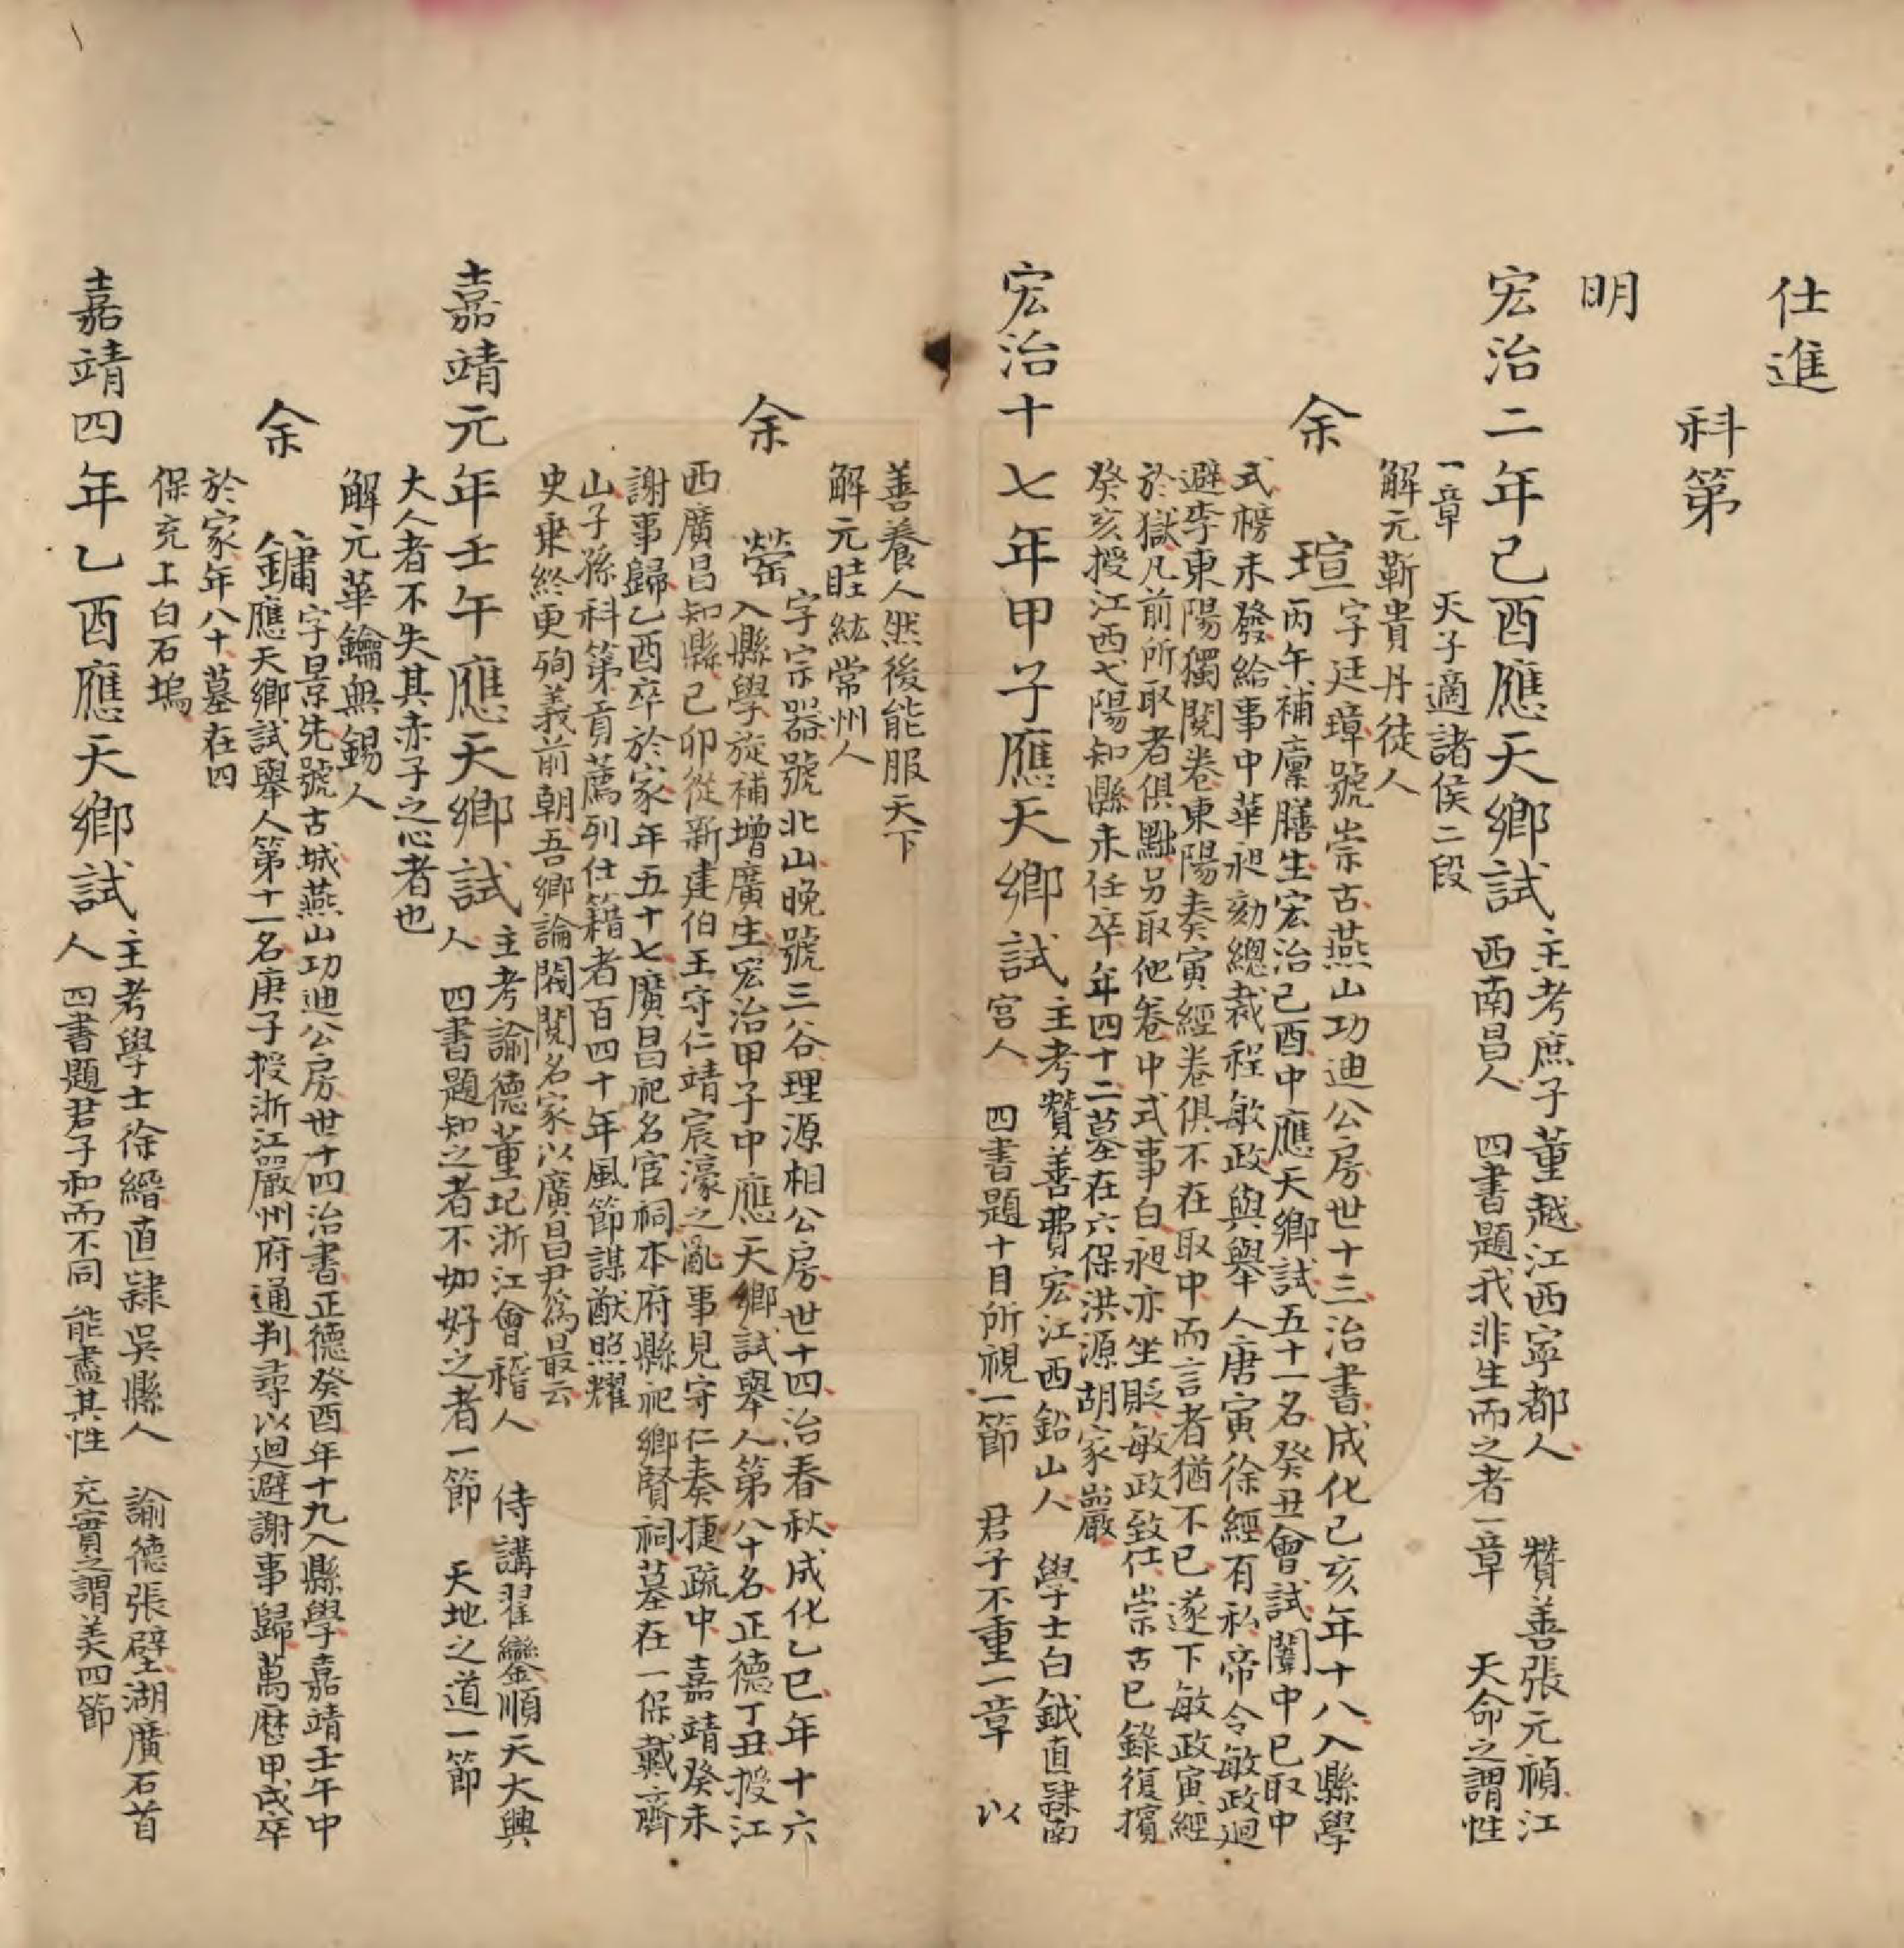 仕進
科第
明
宏治二年己酉應天鄉試
主考庶子董越江西寧都人 贊善張元禎江
西南昌人 四書題我非生而之者一章 天命之謂性
一章 天子適諸侯二段
解元靳貴丹徒人
余
瑄
字廷璋號崇古燕山功迪公房世十三治書成化己亥年十八入縣學
丙午補廩膳生宏治己酉中應天鄉試五十一名癸丑會試闈中已取中
式榜未發給事中華昶劾總裁程敏政與舉人唐寅徐經有私帝令敏政迴
避李東陽獨閱卷東陽奏寅經卷俱不在取中而言者猶不已遂下敏政寅經
於獄凡前所取者俱黜另取他卷中式事白昶亦坐貶敏政致仕崇古已錄復擯
癸亥授江西弋陽知縣未任卒年四十二墓在六保洪源胡家巖
宏治十七年甲子應天鄉試
主考贊善費宏江西鉛山人 學士白鉞直隸南
宮人 四書題十目所視一節 君子不重二章 以
善養人然後能服天下
解元眭紘常州人
余
罃
字宗器號北山晚號三谷理源相公房世十四治春秋成化乙巳年十六
入縣學旋補增廣生宏治甲子中應天鄉試舉人第八十名正德丁丑授江
西廣昌知縣己卯從新建伯王守仁靖宸濠之亂事見守仁奏捷疏中嘉靖癸未
謝事歸乙酉卒於家年五十七廣昌祀名宦祠本府縣祀鄉賢祠墓在一保戴齋
山子孫科第貢薦列仕籍者百四十年風節謀猷照耀
史乘終更殉義前朝吾鄉論閥閱名家以廣昌尹為最云
嘉靖元年壬午應天鄉試
主考諭德董玘浙江會稽人 侍講翟鑾順天大興
人 四書題知之者不如好之者一節 天地之道一節
大人者不失其赤子之心者也
解元華鑰無錫人
余
鏞
字景先號古城燕山功迪公房世十四治書正德癸酉年十九入縣學嘉靖壬午中
應天鄉試舉人第十一名庚子授浙江嚴州府通判尋以迴避謝事歸萬歷甲戌卒
於家年八十墓在四
保充上白石塢
嘉靖四年乙酉應天鄉試
主考學士徐縉直隸吳縣人 諭德張璧湖廣石首
人 四書題君子和而不同 能盡其性 充實之謂美四節